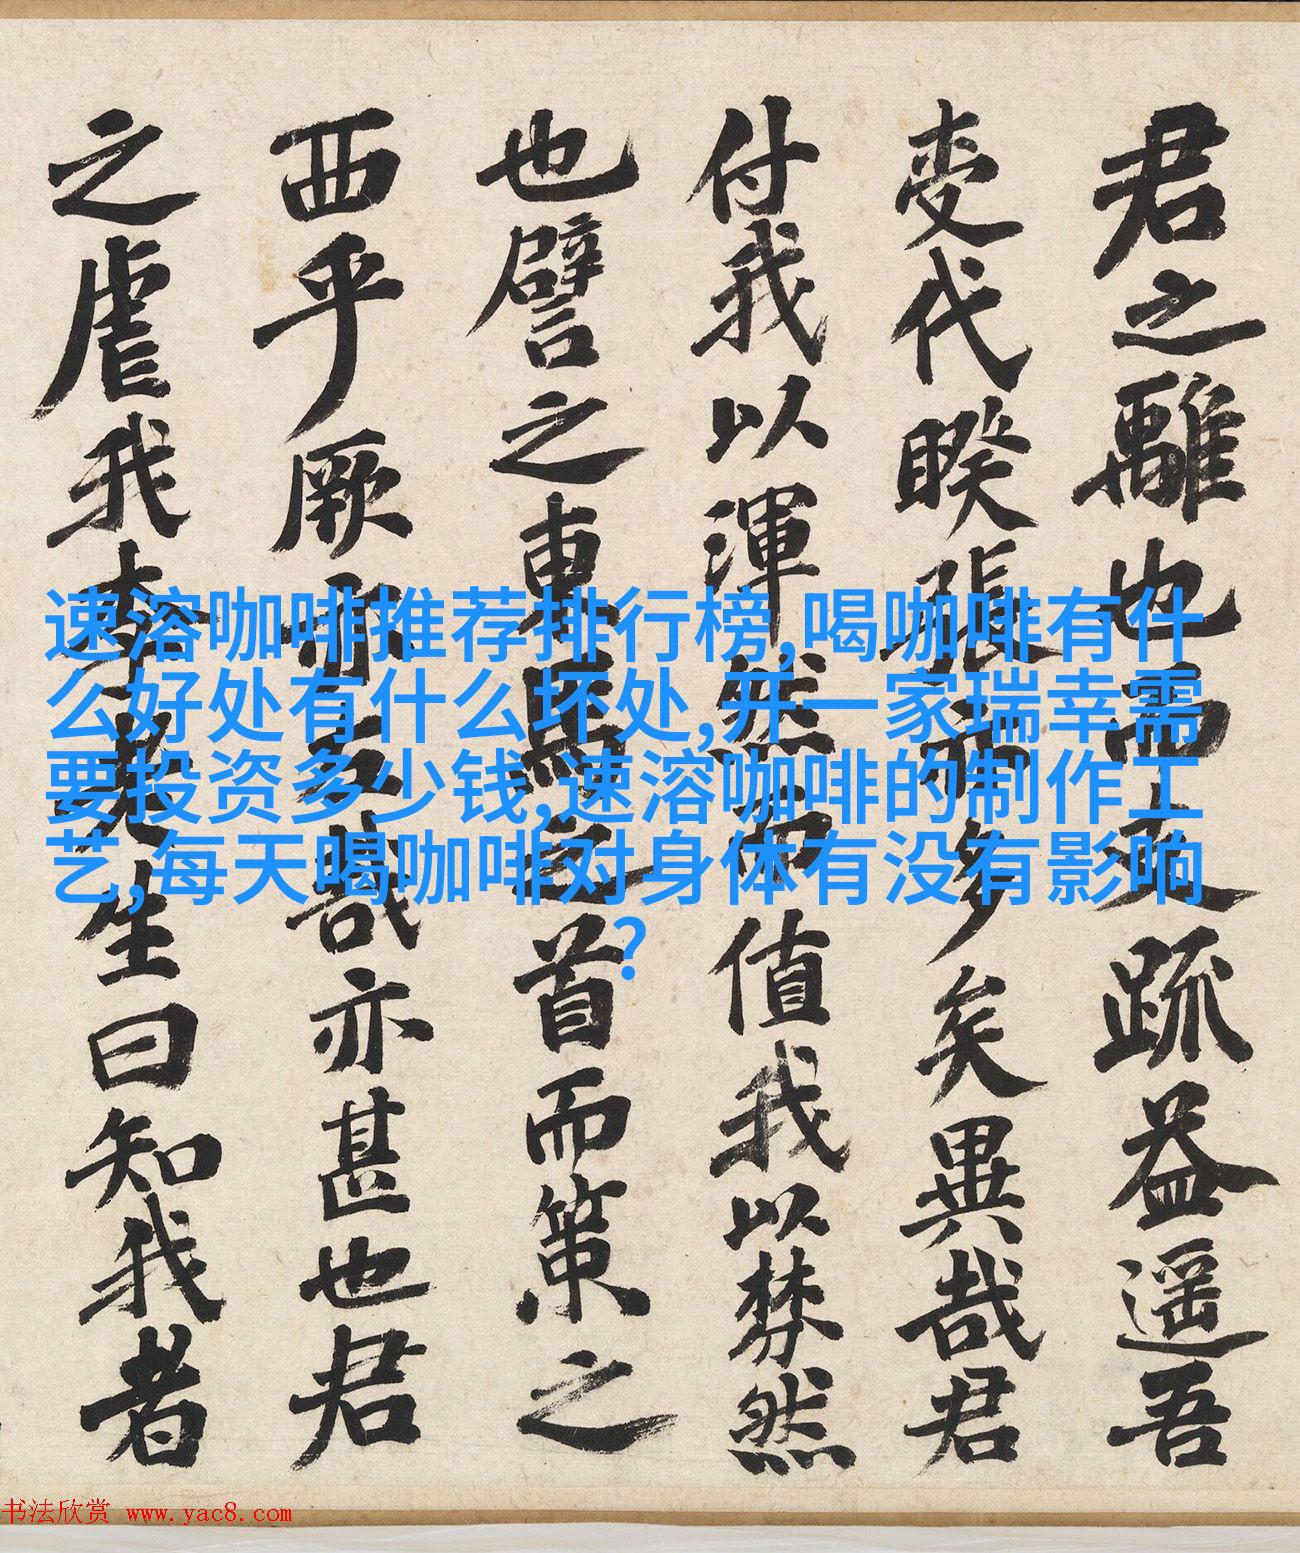 君之離也而更疏益遥吾
代睽張亦多矣異哉君
付我以渾然而值我以棼然
也譬之東馬之首而策之
西乎厥亦哉亦甚也君
之虐我先生曰知我者
速溶咖啡推荐排行榜,喝咖啡有什
么好处有什么坏处,开一家瑞幸需
要投资多少钱,速溶咖啡的制作工
艺,每天喝咖啡对身体有没有影响
?
书法欣赏 www.yac8.com